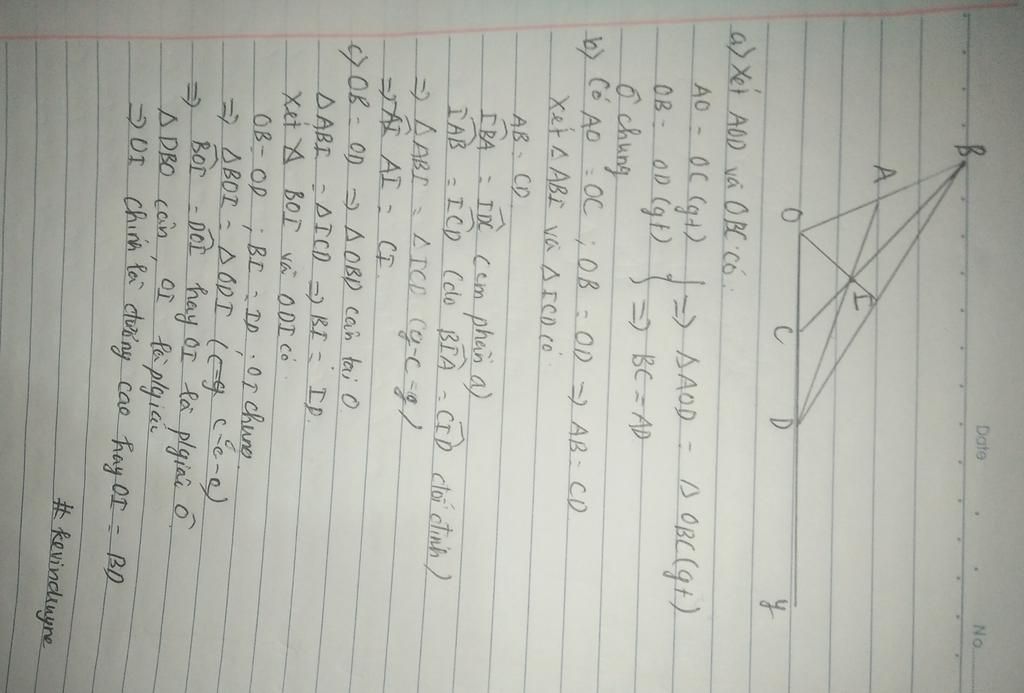 Date
No.
B
A
O
I
C
D
y
a) Xét AOD và OBC có:
AO = OC (gt)
OB = OD (gt) } => △AOD = △OBC (gt)
Ô chung => BC = AD
b) Có AO = OC ; OB = OD => AB = CD
Xét △ABI và △ICD có:
AB = CD
IBA = IDC (cm phần a)
IAB = ICD (do BIA = CID đối đỉnh)
=> △ABI = △ICD (g-c-g)
=> AI = CI.
c) OB = OD => △OBD cân tại O
△ABI = △ICD => BI = ID.
Xét △ BOI và ODI có:
OB = OD ; BI = ID ; OI chung
=> △BOI = △ODI (c-c-c)
=> BOI = DOI hay OI là p/giác Ô
△DBO cân, OI là p/giác
=> OI chính là đường cao hay OI = BD